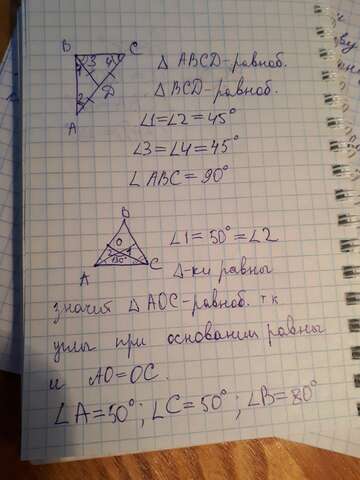 B
C
1
3
4
D
2
A
Δ ABCD-равноб.
Δ BCD-равноб.
∠1=∠2=45°
∠3=∠4=45°
∠ABC=90°
B
O
130°
A
C
∠1=50°=∠2
Δ-ки равны
значит Δ AOC-равноб. т к
углы при основании равны
и AO=OC.
∠A=50°; ∠C=50°; ∠B=80°